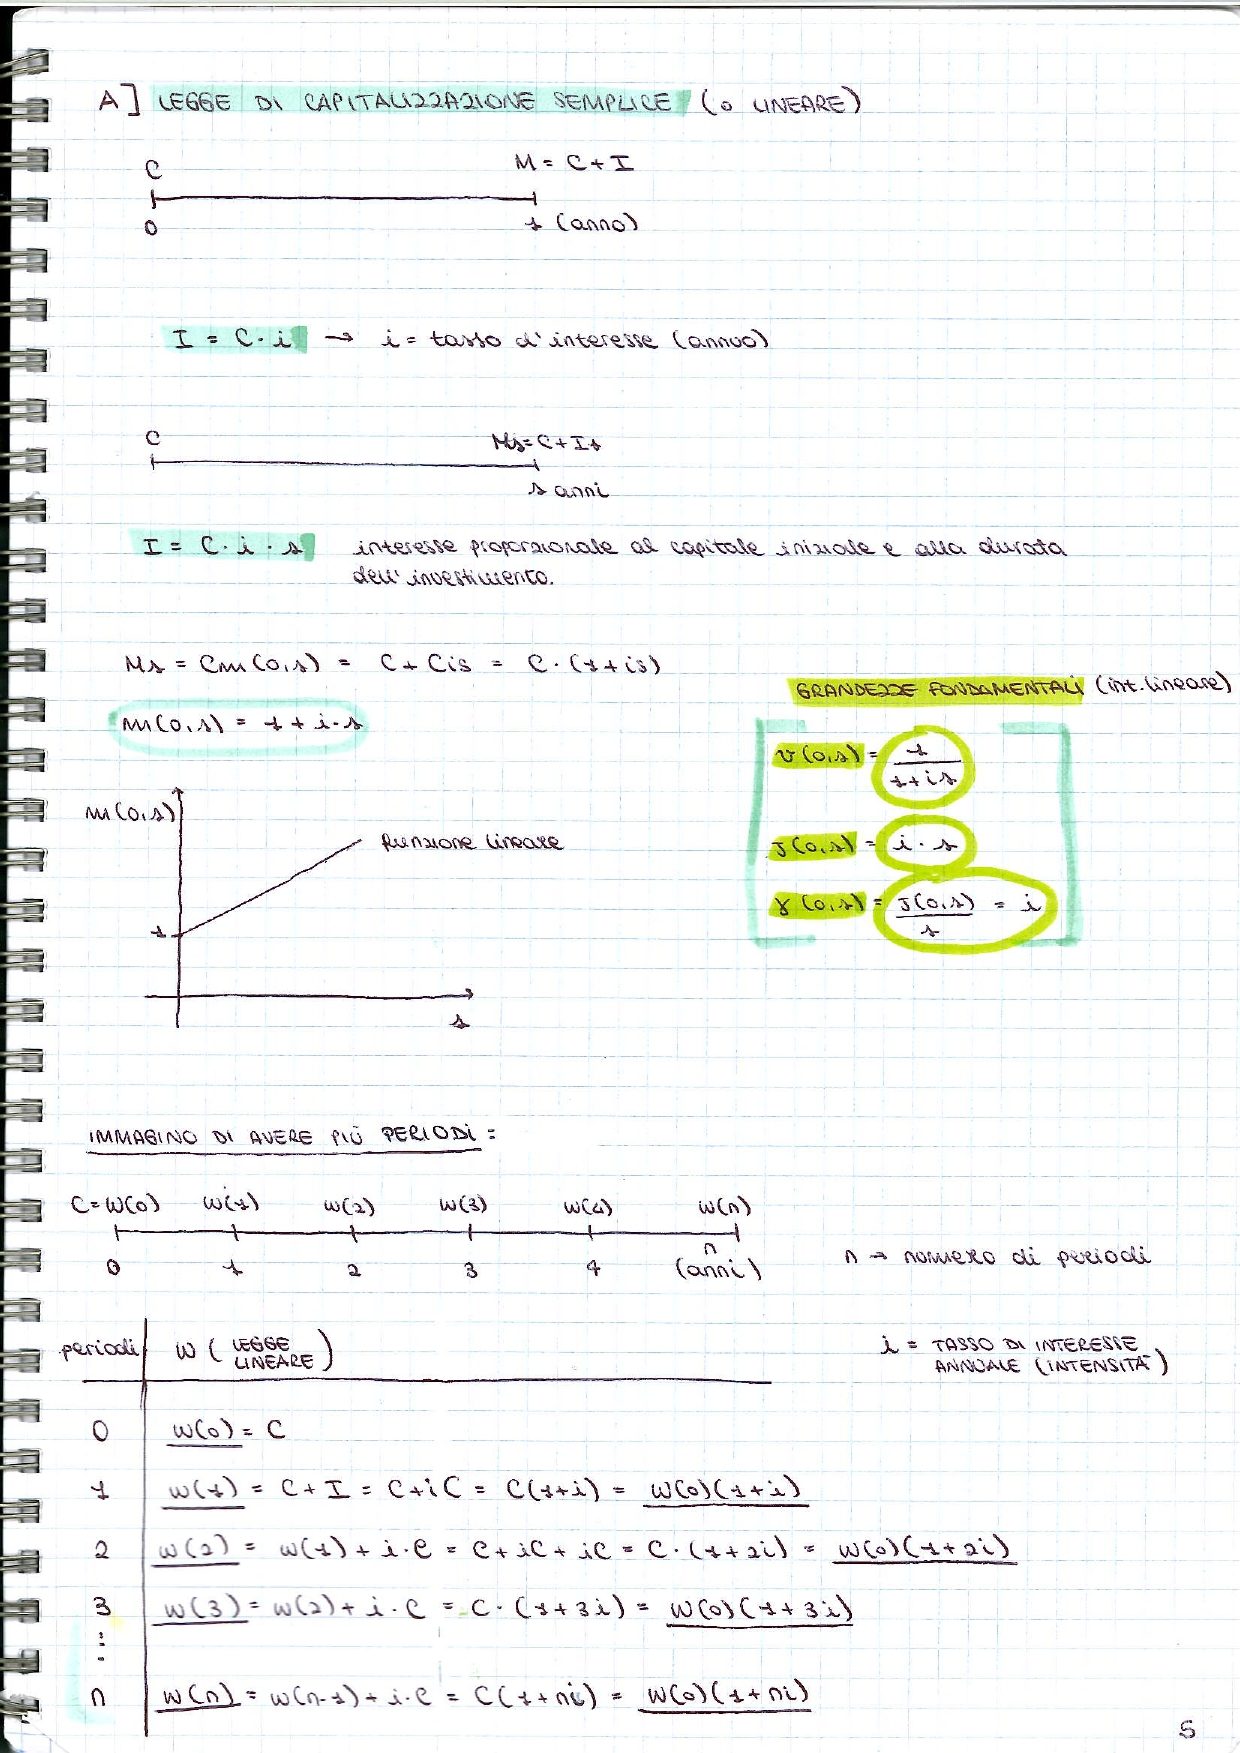 A] LEGGE DI CAPITALIZZAZIONE SEMPLICE (o LINEARE)
C M = C + I
0 1 (anno)
I = C · i → i = tasso d'interesse (annuo)
C Ms = C + Is
s anni
I = C · i · s interesse proporzionale al capitale iniziale e alla durata
dell'investimento.
Ms = Cm(0,s) = C + Cis = C · (1+is)
GRANDEZZE FONDAMENTALI (int. lineare)
m(0,s) = 1 + i · s
v(0,s) = 1/(1+is)
m(0,s)
Funzione lineare
J(0,s) = i · s
γ(0,s) = J(0,s)/s = i
1
s
IMMAGINO DI AVERE PIÙ PERIODI :
C = W(0) W(1) W(2) W(3) W(4) W(n)
0 1 2 3 4 n (anni)
n → numero di periodi
periodi W ( LEGGE LINEARE )
i = TASSO DI INTERESSE
ANNUALE (INTENSITÀ)
0 W(0) = C
1 W(1) = C + I = C + iC = C(1+i) = W(0)(1+i)
2 W(2) = W(1) + i · C = C + iC + iC = C · (1+2i) = W(0)(1+2i)
3 W(3) = W(2) + i · C = C · (1+3i) = W(0)(1+3i)
⋮
n W(n) = W(n-1) + i · C = C(1+ni) = W(0)(1+ni)
5